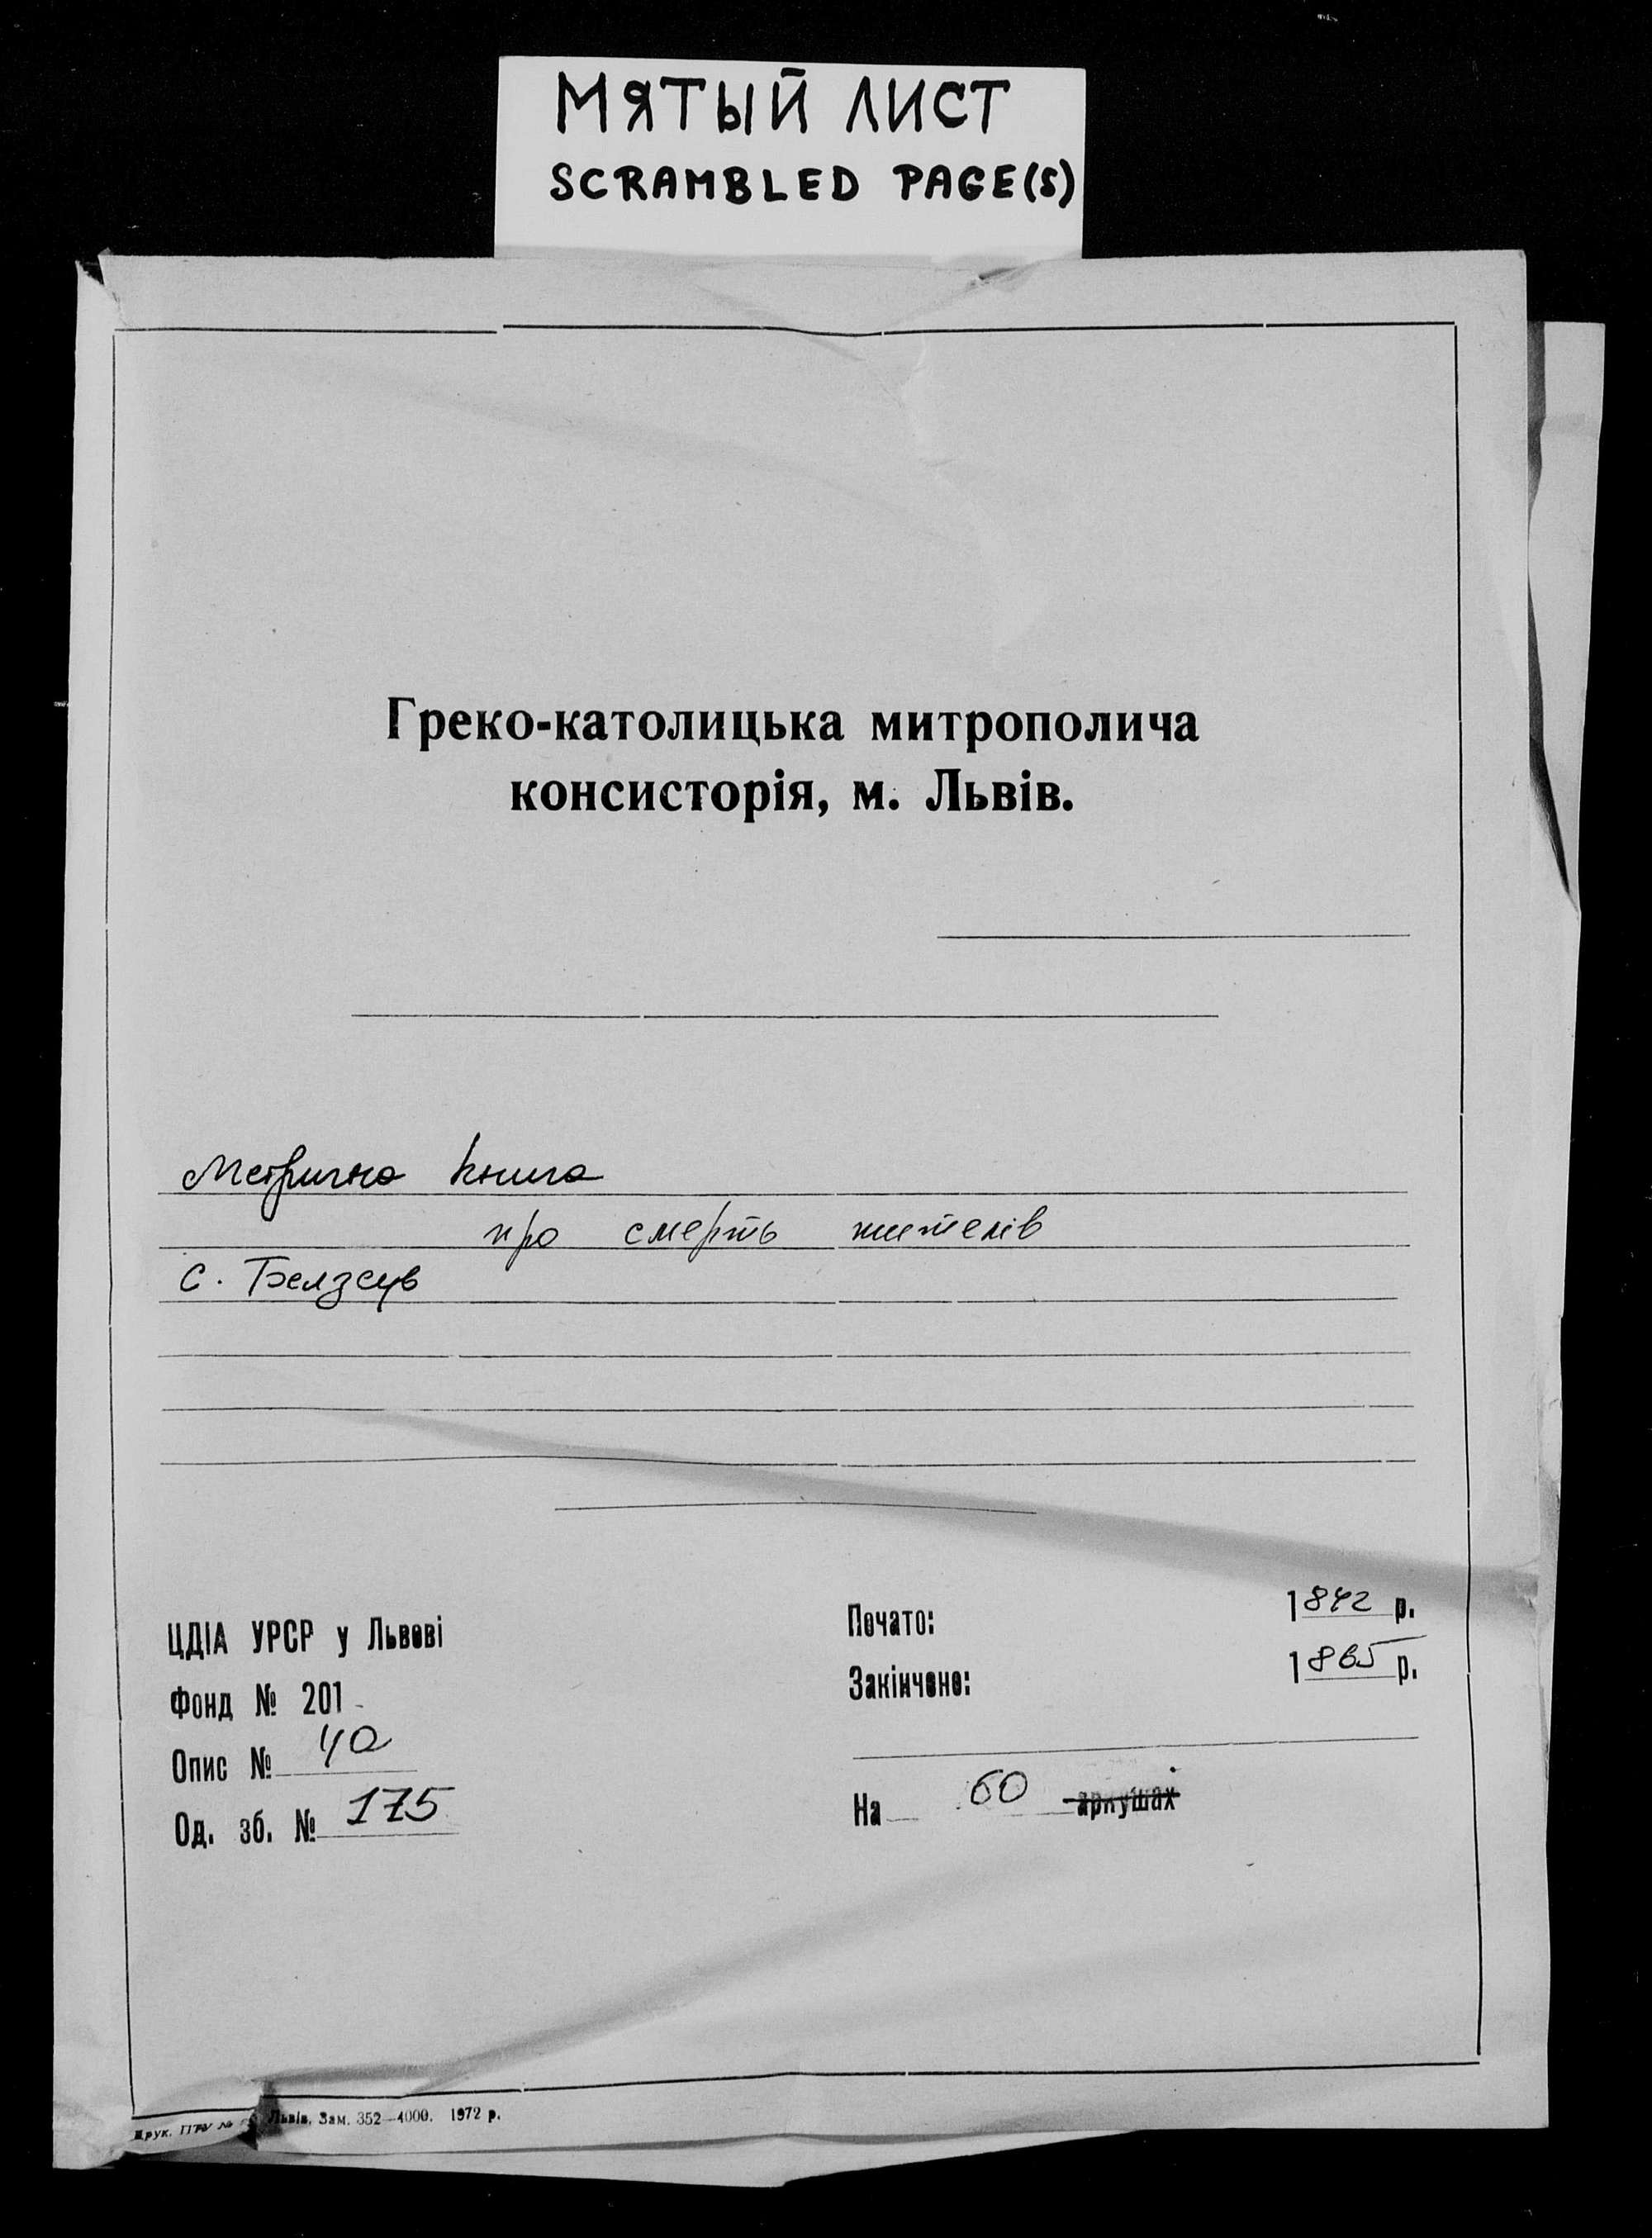 МЯТЫЙ ЛИСТ
SCRAMBLED PAGE(S)
Греко-католицька митрополича
консисторія, м. Львів.
Метрична книга
про смерть жителів
с. Белзець
ЦДІА УРСР у Львові
Фонд № 201
Опис № 4а
Од. зб. № 175
Почато: 1842 р.
Закінчено: 1865 р.
На 60 аркушах
Друк. Львів. Зам. 352—4000. 1972 р.